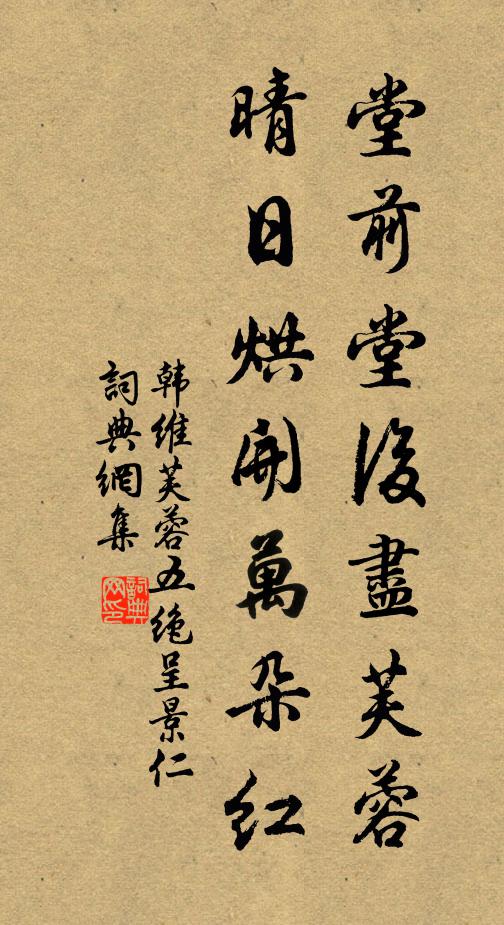 堂前堂後盡芙蓉
晴日烘開萬朵紅
韩維芙蓉五绝呈景仁
詞典網集
詞典網印